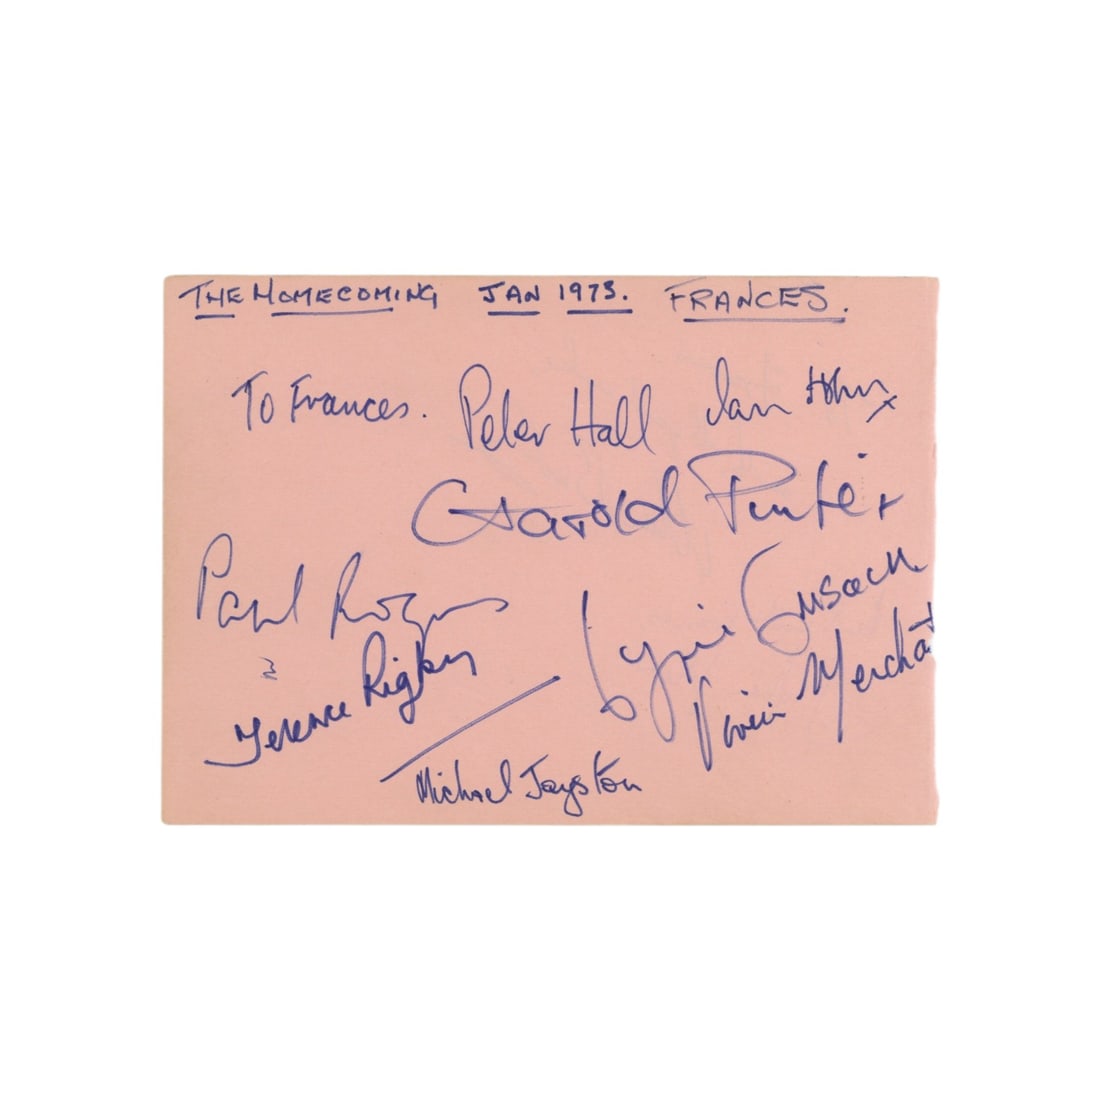 THE HOMECOMING JAN 1973. FRANCES.
To Frances. Peter Hall Ian Holm x
Harold Pinter
Paul Rogers
Cyril Cusack
Terence Rigby
Vivien Merchant
Michael Jayston